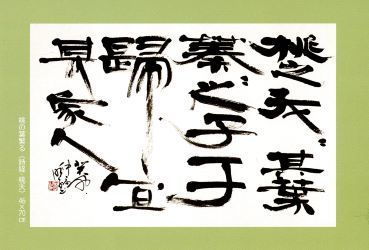 桃之夭〻其葉
蓁〻之子于
歸宜
其家人
桃の葉繁る (詩経・桃夭) 46×70㎝